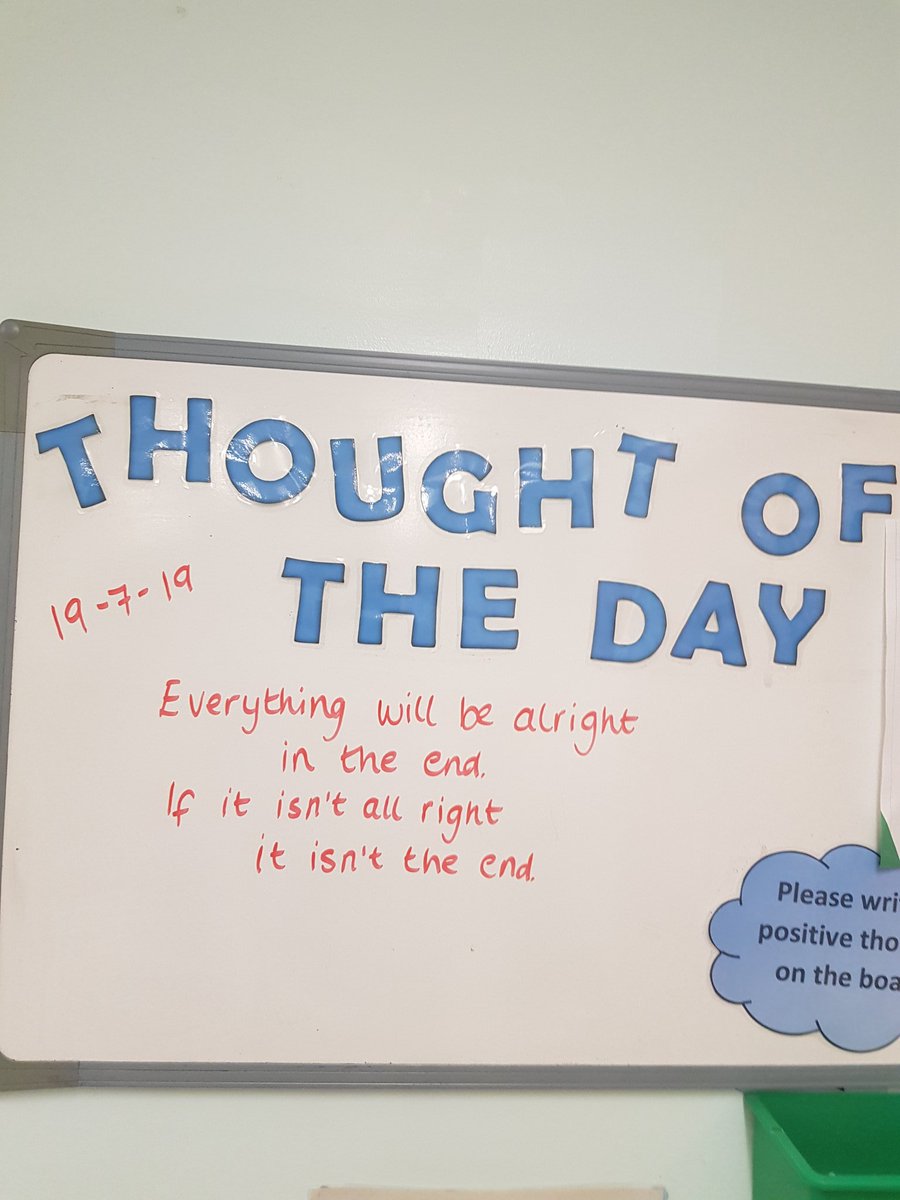 THOUGHT OF
THE DAY
19-7-19
Everything will be alright
in the end.
If it isn't all right
it isn't the end.
Please
positive
on the